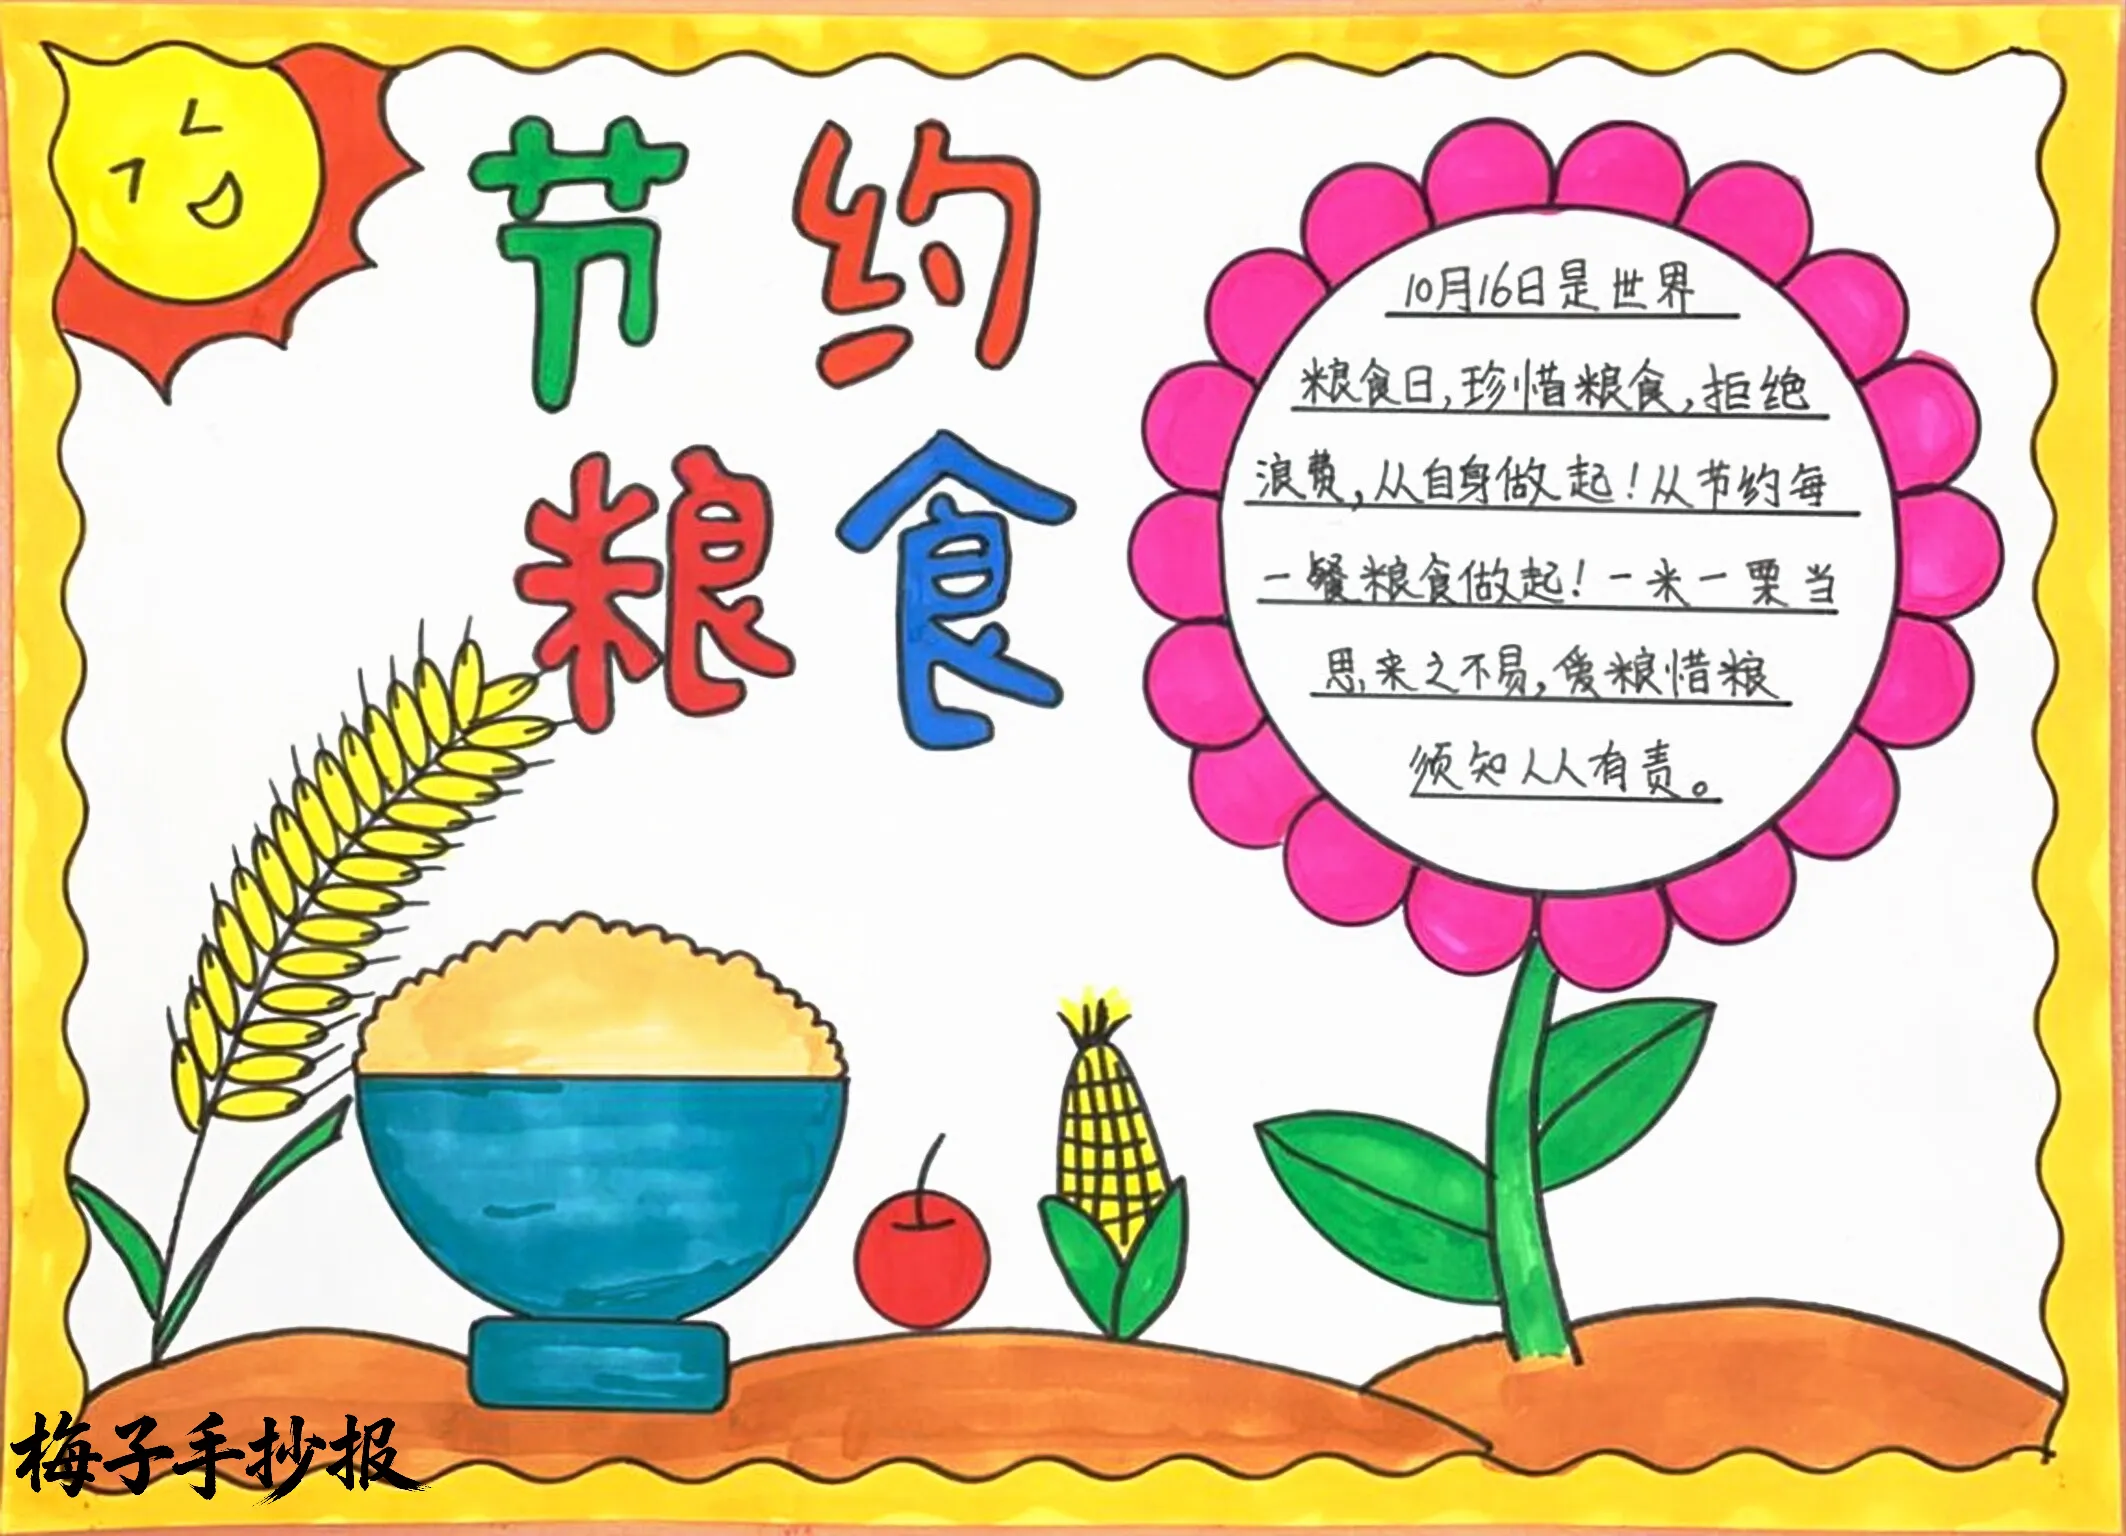 节约
粮食
10月16日是世界
粮食日,珍惜粮食,拒绝
浪费,从自身做起!从节约每
一餐粮食做起!一米一粟当
思来之不易,爱粮惜粮
须知人人有责。
梅子手抄报